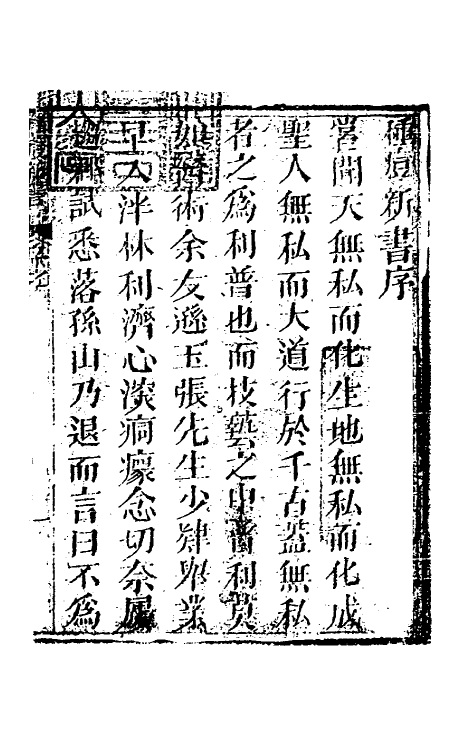 種痘新書序
嘗聞天無私而化生地無私而化成
聖人無私而大道行於千古蓋無私
者之為利普也而技藝之中普利莫
如 術余友遜玉張先生少肄舉業
早入泮林利濟心淡痌瘝念切奈屢
試悉落孫山乃退而言曰不為